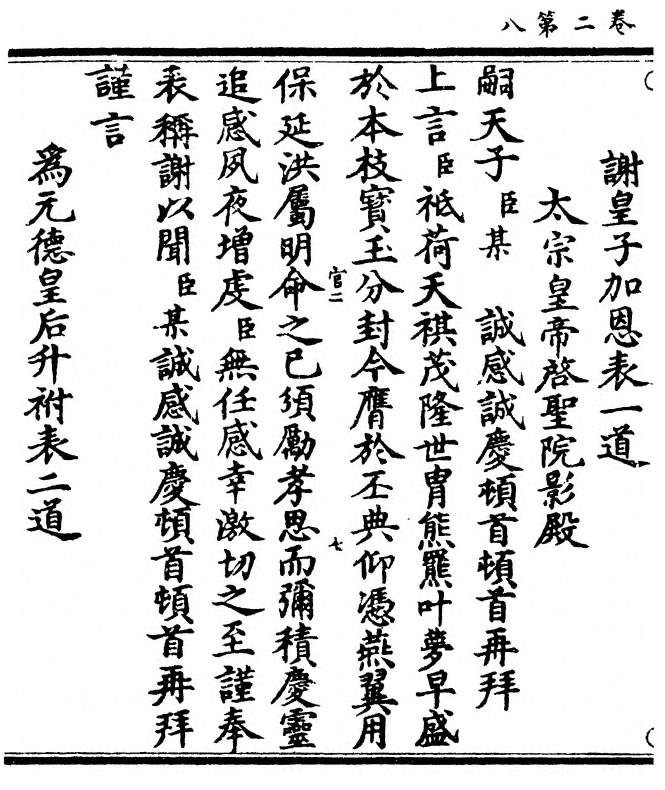 卷二第八
謝皇子加恩表一道
太宗皇帝啓聖院影殿
嗣天子臣某 誠感誠慶頓首頓首再拜
上言臣祗荷天祺茂隆世胄熊羆叶夢早盛
於本枝寶玉分封今膺於丕典仰憑燕翼用
官二
七
保延洪屬明命之已須勵孝思而彌積慶靈
追感夙夜增虔臣無任感幸激切之至謹奉
表稱謝以聞臣某誠感誠慶頓首頓首再拜
謹言
為元德皇后升祔表二道